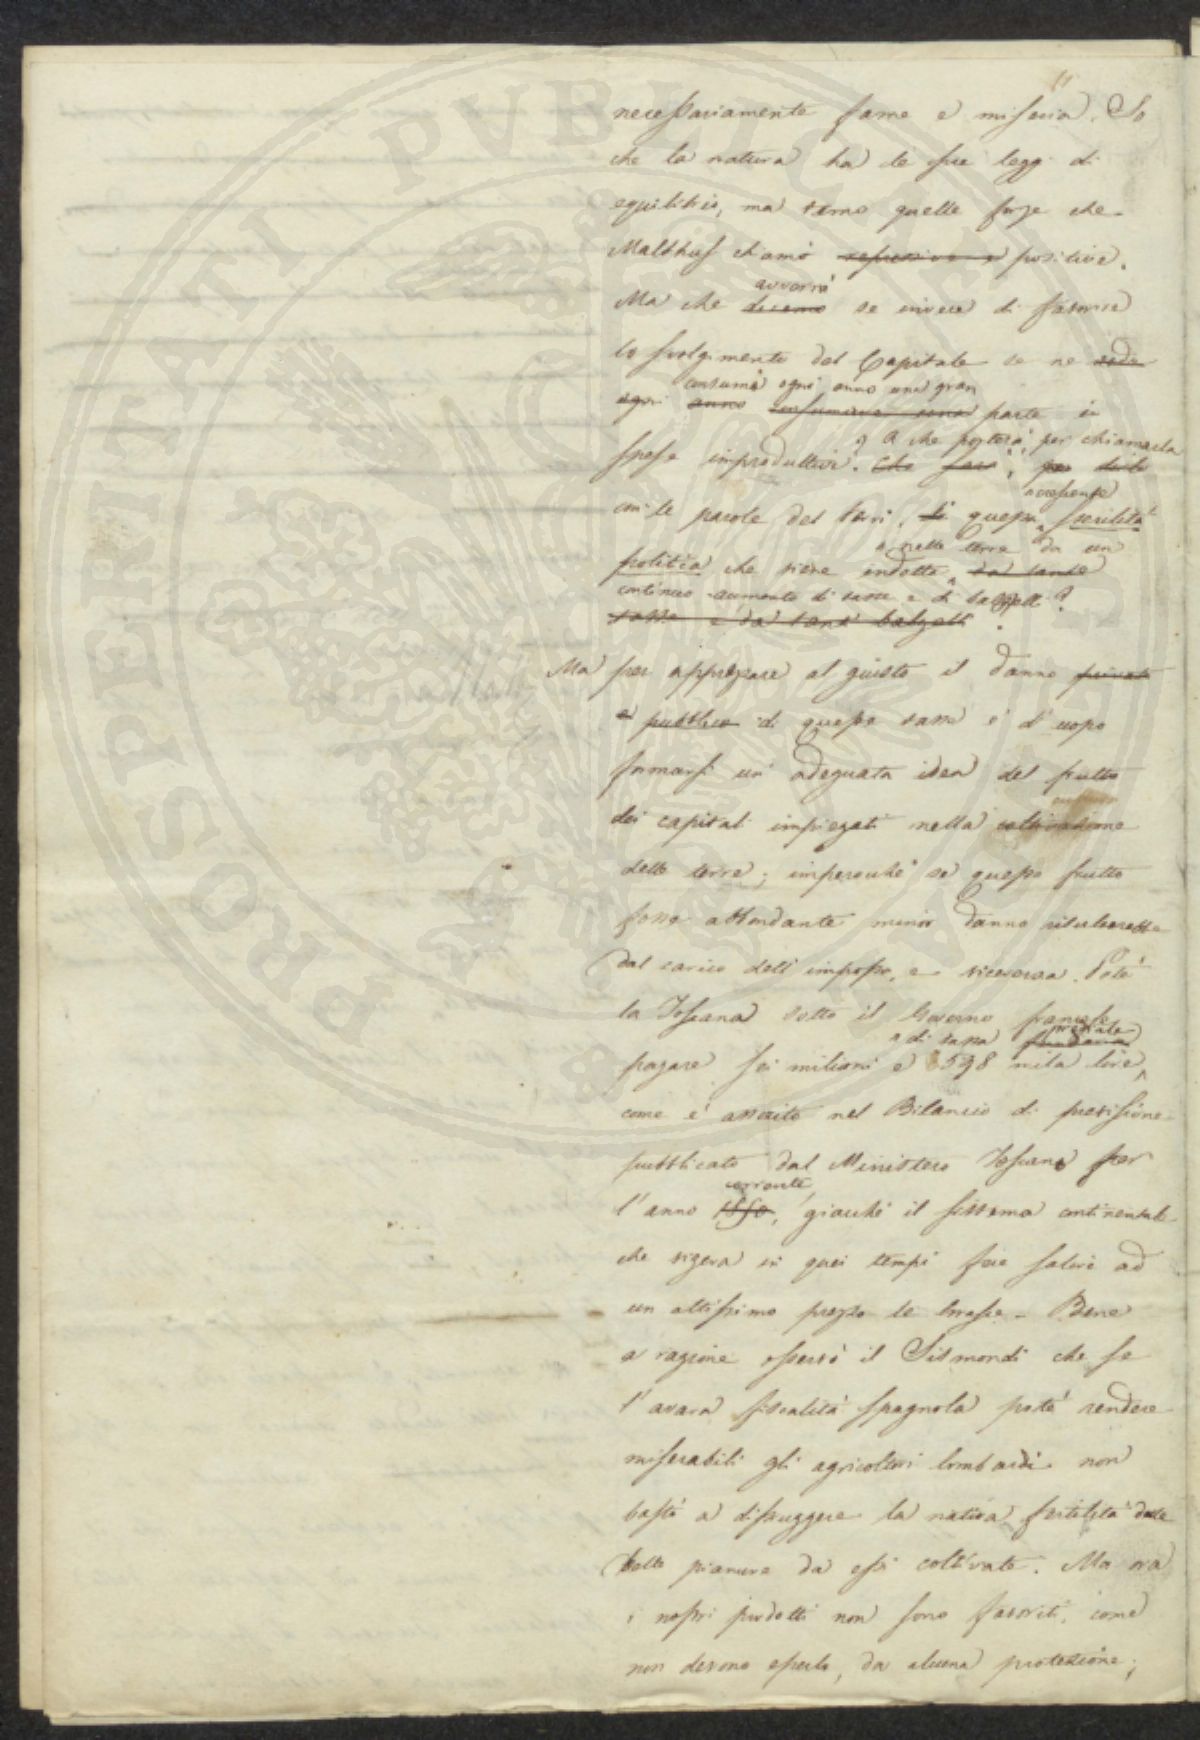 11
necessariamente fame e miseria. So
che la natura ha le sue leggi di
equilibrio, ma temo quelle forze che
Malthus chiamò repressive e positive.
avverrà
Ma che diremo se invece di favorire
lo svolgimento del Capitale se ne vede
consumi ogni anno una gran
ogni anno consumare una parte in
spese improduttive. Che sarà, per dirla
a che porterà, per chiamarla
con le parole del Verri, di questa sterilità
crescente
politica che viene indotta da tante
nelle terre da un
continuo aumento di tasse e di balzelli?
tasse e da tanti balzelli.
Ma per apprezzare al giusto il danno privato
e pubblico di questa tassa è d'uopo
formarsi un'adeguata idea del frutto
dei capitali impiegati nella coltivazione
delle terre; imperocchè se questo frutto
fosse abbondante minor danno risulterebbe
dal carico dell'imposta, e viceversa. Potè
la Toscana sotto il Governo francese
di tassa fondiaria prediale
pagare sei milioni e 598 mila lire,
come è asserito nel Bilancio di previsione
pubblicato dal Ministero Toscano per
corrente
l'anno 1850, giacchè il sistema continentale
che vigeva in quei tempi fece salire ad
un altissimo prezzo le grasce. Bene
a ragione osservò il Sismondi che se
l'avara fiscalità spagnola potè rendere
miserabili gli agricoltori lombardi non
bastò a distruggere la nativa fertilità delle
belle pianure da essi coltivate. Ma ora
i nostri prodotti non sono favoriti, come
non devono esserlo, da alcuna protezione;
PROSPERITATI PVBLICAE